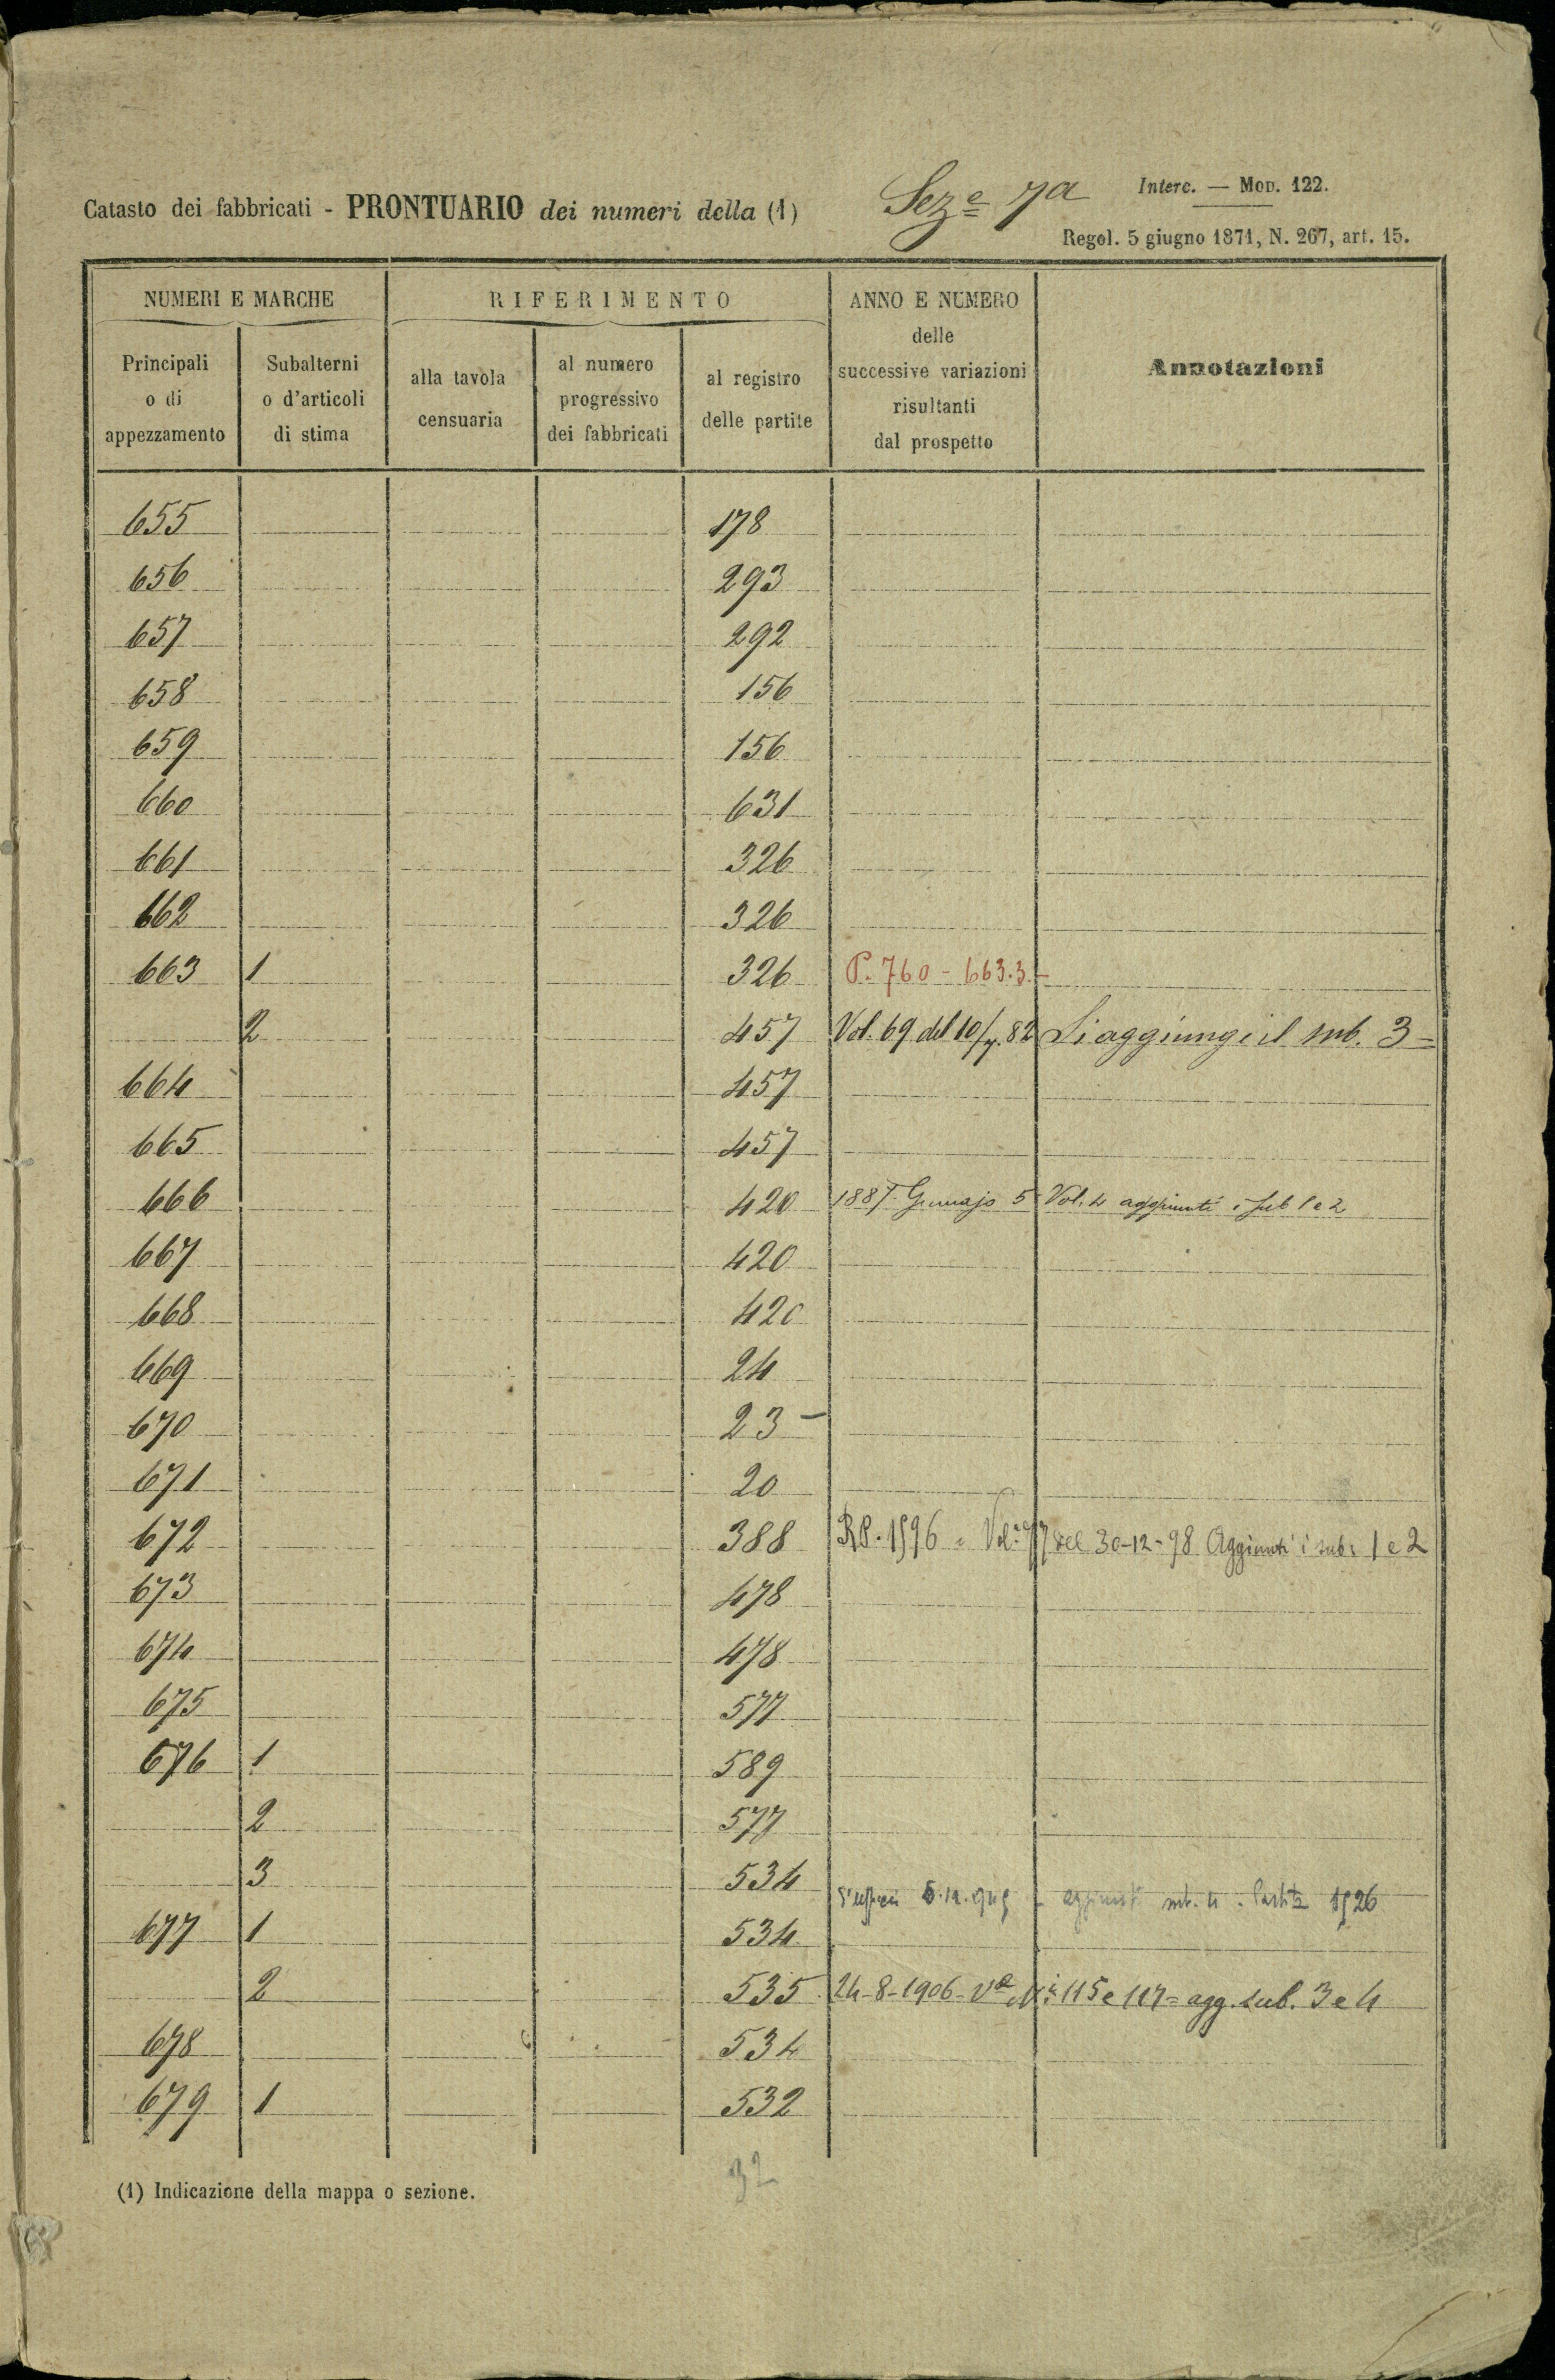 Catasto dei fabbricati - PRONTUARIO dei numeri della (1) Seze 7a
Interc. — Mod. 122.
Regol. 5 giugno 1871, N. 267, art. 15.
NUMERI E MARCHE
RIFERIMENTO
ANNO E NUMERO delle successive variazioni risultanti dal prospetto
Annotazioni
Principali o di appezzamento
Subalterni o d'articoli di stima
alla tavola censuaria
al numero progressivo dei fabbricati
al registro delle partite
655 178
656 293
657 292
658 156
659 156
660 631
661 326
662 326
663 1 326 P. 760 - 663.3 -
2 457 Vol. 69 del 10/7.82 Si aggiunge il sub. 3 =
664 457
665 457
666 420 1887 Gennajo 5 Vol. 4 aggiunti i sub 1 e 2
667 420
668 420
669 24
670 23 -
671 20
672 388 RP. 1596 = Vol. 77 del 30-12-98 Aggiunti i sub. 1 e 2
673 478
674 478
675 577
676 1 589
2 577
3 534
aggiunto sub. 4 . Partita 1926
677 1 534
2 535 24-8-1906 - Ve Ni 115 e 117 = agg. sub. 3 e 4
678 534
679 1 532
32
(1) Indicazione della mappa o sezione.